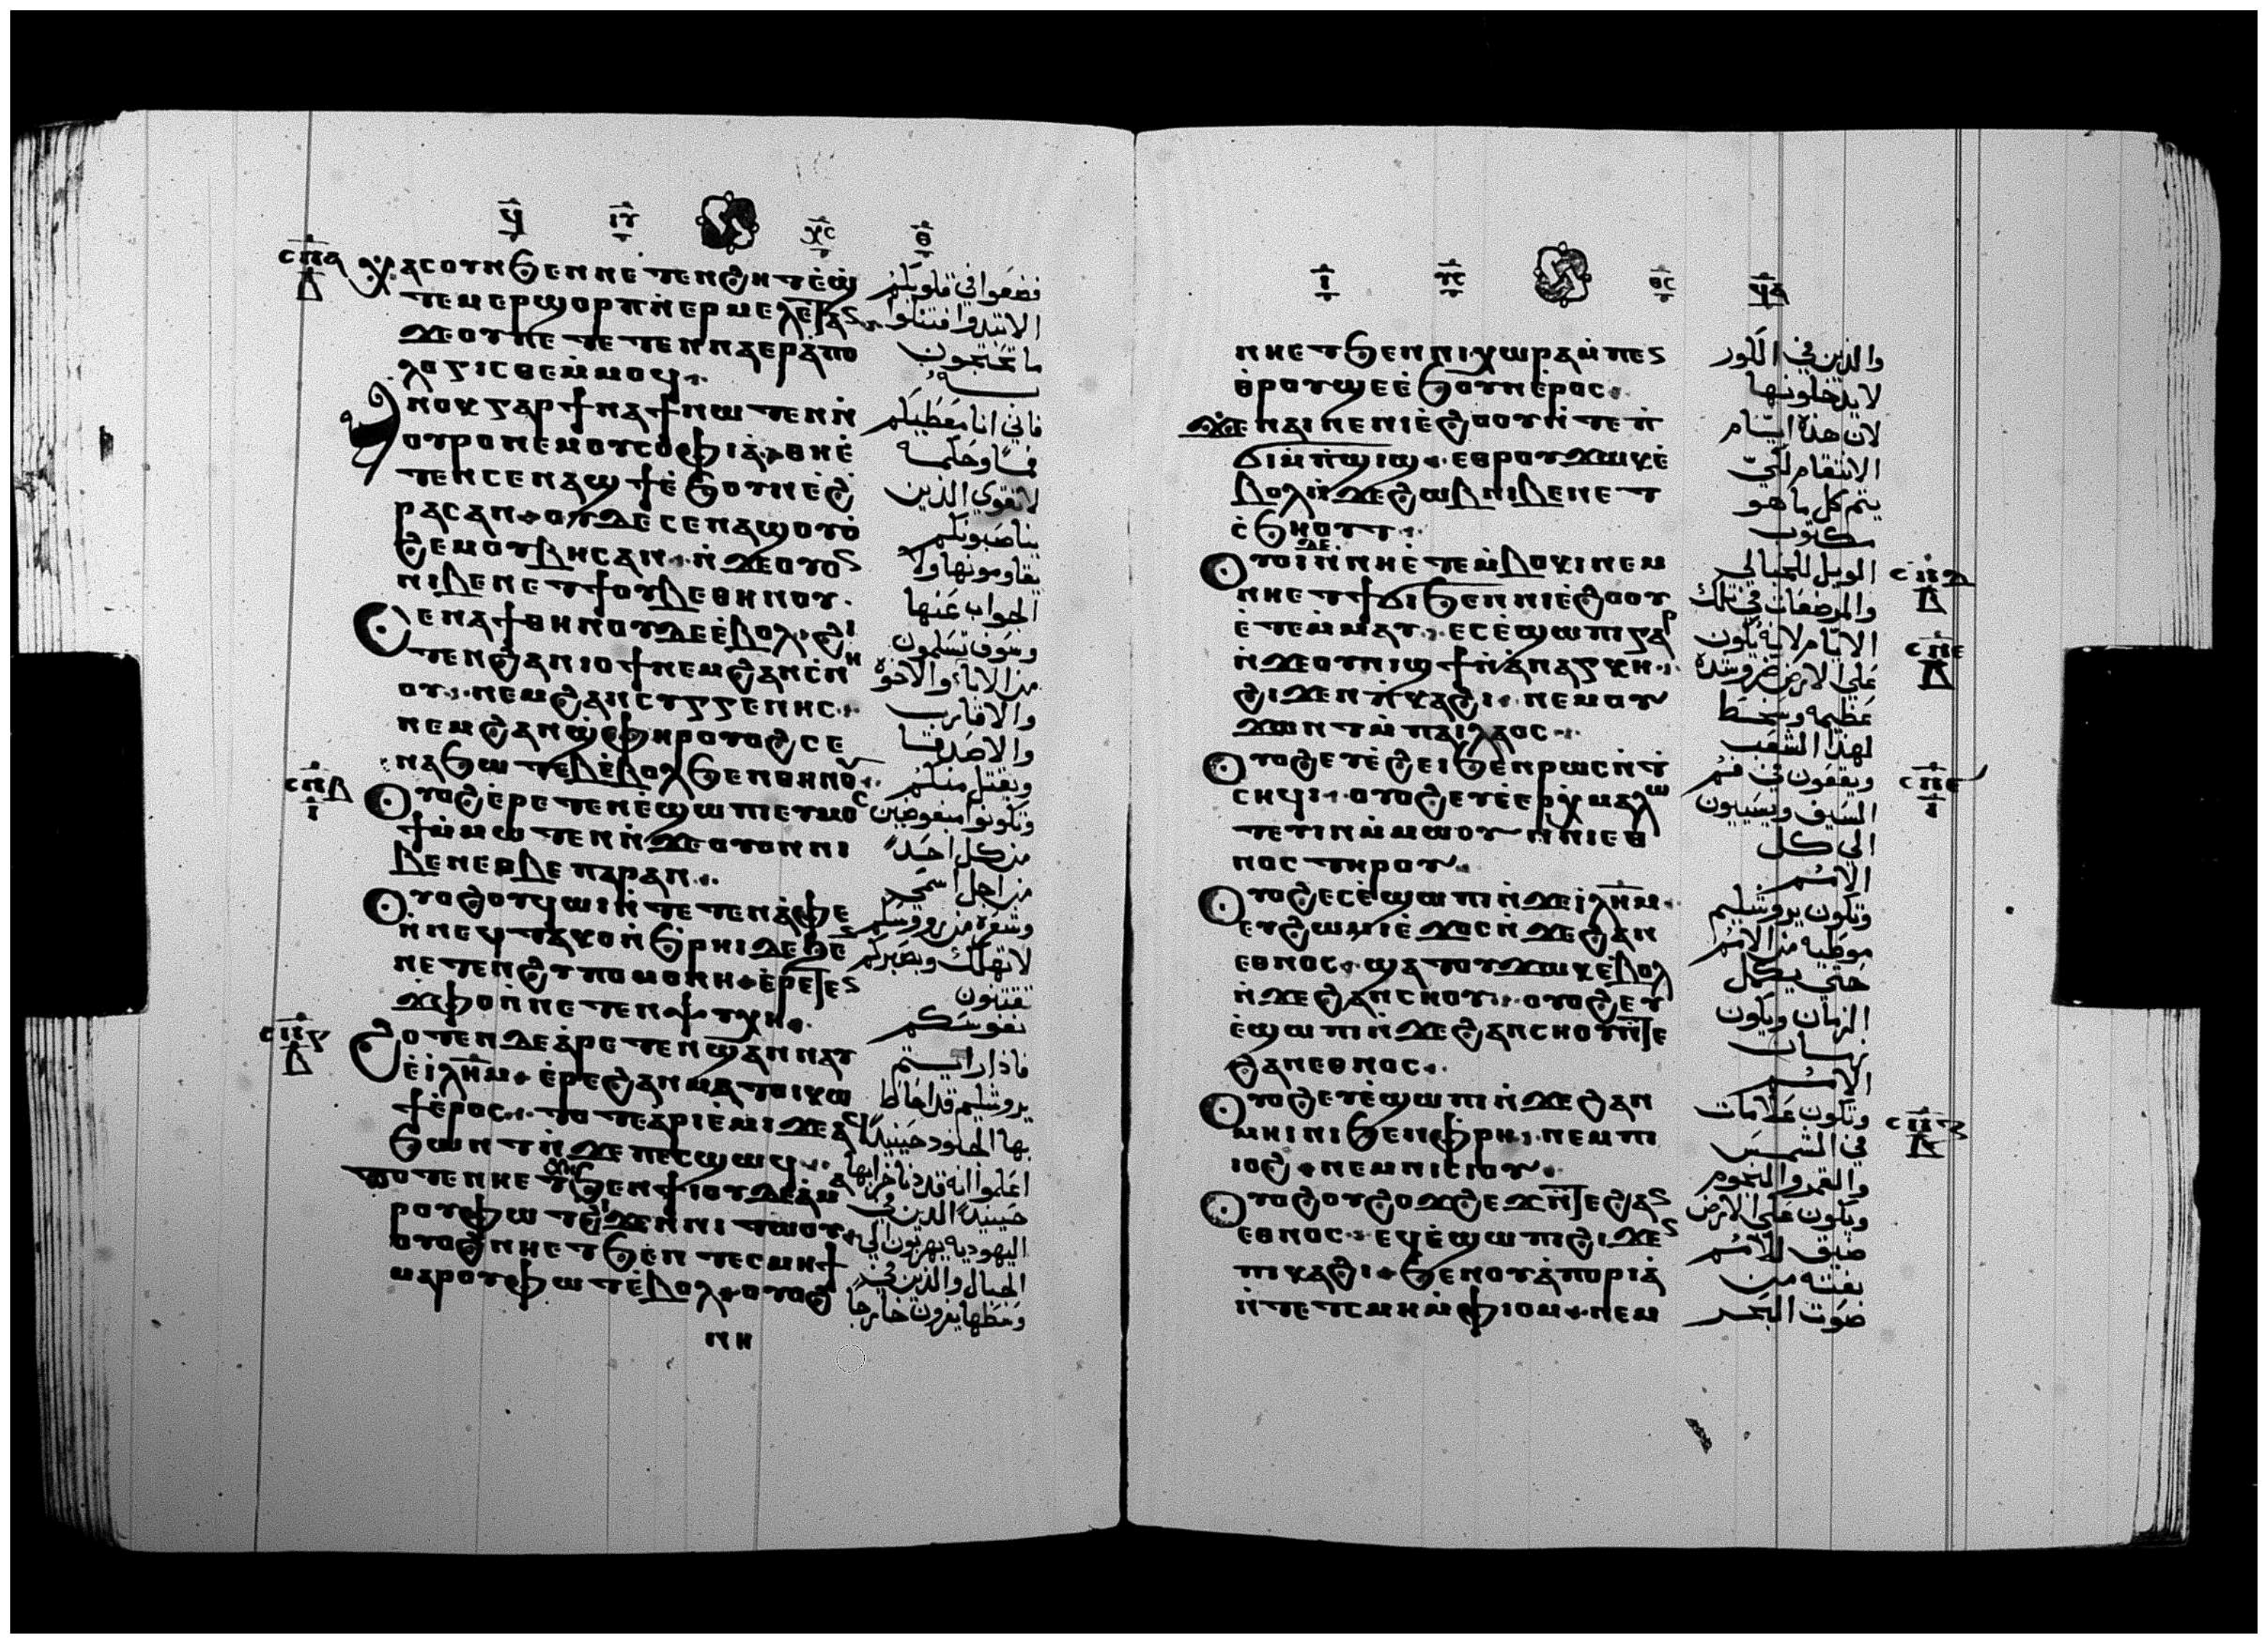 ϥ ⲓⲩ ⲭⲥ ⲑ
ⲥⲡⲁ
ⲭⲁⲥ ⲟⲩⲛ ϧⲉⲛ ⲛⲉⲧⲉⲛϩⲏⲧ ⲉ̀ϣ̀
ⲧⲉⲙⲉⲣϣⲟⲣⲡ ⲛ̀ⲉⲣⲙⲉⲗⲉⲧⲁⲛ
ϫⲉ ⲟⲩ ⲡⲉ ⲧⲉⲧⲉⲛⲛⲁⲉⲣⲁ̀ⲡⲟ
ⲗⲟⲅⲓⲥⲑⲉ ⲙ̀ⲙⲟϥ
ⲁⲛⲟⲕ ⲅⲁⲣ ϯⲛⲁϯ ⲛⲱⲧⲉⲛ ⲛ̀
ⲟⲩⲣⲟ ⲛⲉⲙ ⲟⲩⲥⲟⲫⲓⲁ̀ ⲑⲏ ⲉ̀
ⲧⲉⲛⲥⲉⲛⲁϣϯ ⲉ̀ϧⲟⲩⲛ ⲉ̀ϩ
ⲣⲁⲥ ⲁⲛ ⲟⲩⲇⲉ ⲥⲉⲛⲁϣⲟⲩⲟ̀
ϩⲉⲙ ⲟⲩⲃⲏⲥ ⲁⲛ ⲛ̀ϫⲉ ⲟⲩⲟⲛ
ⲛⲓⲃⲉⲛ ⲉⲧϯ ⲟⲩⲃⲉ ⲑⲏⲛⲟⲩ
ⲥⲉⲛⲁϯ ⲑⲏⲛⲟⲩ ⲇⲉ ⲉ̀ⲃⲟⲗ ϩⲓ
ⲧⲉⲛ ϩⲁⲛⲓⲟϯ ⲛⲉⲙ ϩⲁⲛⲥ̀ⲛⲏ
ⲟⲩ ⲛⲉⲙ ϩⲁⲛⲥⲩⲅⲅⲉⲛⲏⲥ
ⲛⲉⲙ ϩⲁⲛϣ̀ⲫⲏⲣ ⲟⲩⲟϩ ⲥⲉ
ⲛⲁϧⲱⲧⲉⲃ ⲉ̀ⲃⲟⲗ ϧⲉⲛ ⲑⲏⲛⲟⲩ
ⲥⲡⲃ
ⲓ
ⲟⲩⲟϩ ⲉ̀ⲣⲉⲧⲉⲛⲉ̀ϣⲱⲡⲓ ⲉⲩⲙⲟⲥ
ϯ ⲙ̀ⲙⲱⲧⲉⲛ ⲛ̀ϫⲉ ⲟⲩⲟⲛ ⲛⲓ
ⲃⲉⲛ ⲉⲑⲃⲉ ⲡⲁⲣⲁⲛ
ⲟⲩⲟϩ ⲟⲩϥⲱⲓ ⲛ̀ⲧⲉ ⲧⲉⲛⲁ̀ⲫⲉ
ⲛ̀ⲛⲉϥⲧⲁⲕⲟ ⲛ̀ϧ̀ⲣⲏⲓ ⲇⲉ ϧⲉⲛ
ⲛⲉⲧⲉⲛϩⲩⲡⲟⲙⲟⲛⲏ ⲉ̀ⲣⲉⲧⲉⲛ
ϫ̀ⲫⲟ ⲛ̀ⲛⲉⲧⲉⲛⲯⲩⲭⲏ
ⲥⲡⲅ
ϩⲟⲧⲉⲛ ⲇⲉ ⲁ̀ⲣⲉⲧⲉⲛϣⲁⲛⲛⲁⲩ
ⲉ̀ⲓ̀ⲗⲏⲙ ⲉ̀ⲣⲉ ϩⲁⲛⲙⲁⲧⲟⲓ ⲕⲱ
ϯ ⲉ̀ⲣⲟⲥ ⲧⲟⲧⲉ ⲁ̀ⲣⲓⲉ̀ⲙⲓ ϫⲉ ⲁϥ
ϧⲱⲛⲧ ⲛ̀ϫⲉ ⲡⲉⲥϣⲱϥ
ⲧⲟⲧⲉ ⲛⲏ ⲉⲧϧⲉⲛ ϯⲓⲟⲩⲇⲉⲁ̀ ⲙⲁ
ⲣⲟⲩⲫⲱⲧ ϩⲓϫⲉⲛ ⲛⲓⲧⲱⲟⲩ
ⲟⲩⲟϩ ⲛⲏ ⲉⲧϧⲉⲛ ⲧⲉⲥⲙⲏϯ
ⲙⲁⲣⲟⲩⲫⲱⲧ ⲉ̀ⲃⲟⲗ ⲟⲩⲟϩ
ⲛⲏ
فضعوا في قلوبكم
الا تبتدوا فتتلوا
ما تحتجون
به
فاني انا معطيكم
فمًا وحكمه
لا تقوي الذين
يناصبونكم
يقاومونها ولا
الجواب عنها
وسوف تسلمون
من الاباء والاخوة
والاقارب
والاصدقا
ويقتل منكم
وتكونوا مبغوضين
من كل احد
من اجل اسمي
وشعرة من رووسكم
لا تهلك وبصبركم
تقتنون
نفوسكم
فاذا رايتم
يروشليم قد احاط
بها الجنود حينيذ
اعلموا انه قد دنا خرابها
حينيذ الذين في
اليهوديه يهربون الي
الجبال والذين في
وسطها يفرون خارجا
ⲓ ⲩⲥ ⲑⲥ ϥⲁ
ⲛⲏ ⲉⲧϧⲉⲛ ⲛⲓⲭⲱⲣⲁ ⲙ̀ⲡⲉⲛ
ⲑ̀ⲣⲟⲩϣⲉ ⲉ̀ϧⲟⲩⲛ ⲉ̀ⲣⲟⲥ
ϫⲉ ⲛⲁⲓ ⲛⲉ ⲛⲓⲉ̀ϩⲟⲟⲩ ⲛ̀ⲧⲉ ⲡ̀
ϭⲓⲙ̀ⲡ̀ϣⲓϣ ⲉⲑⲣⲟⲩϫⲱⲕ ⲉ̀
ⲃⲟⲗ ⲛ̀ϫⲉ ϩⲱⲃ ⲛⲓⲃⲉⲛ ⲉⲧ
ⲥ̀ϧⲏⲟⲩⲧ
ⲟⲩⲟⲓ ⲇⲉ ⲛ̀ⲛⲏ ⲉ̀ⲧⲉⲙ̀ⲃⲟⲕⲓ ⲛⲉⲙ
ⲛⲏ ⲉⲧϯϭⲓ ϧⲉⲛ ⲛⲓⲉ̀ϩⲟⲟⲩ
ⲉ̀ⲧⲉⲙⲙⲁⲩ ⲉⲥⲉ̀ϣⲱⲡⲓ ⲅⲁⲣ
ⲛ̀ϫⲉ ⲟⲩⲛⲓϣϯ ⲛ̀ⲁ̀ⲛⲁⲅⲕⲏ
ϩⲓϫⲉⲛ ⲡ̀ⲕⲁϩⲓ ⲛⲉⲙ ⲟⲩ
ϫⲱⲛⲧ ⲙ̀ⲡⲁⲓⲗⲁⲟⲥ
ⲟⲩⲟϩ ⲉⲩⲉ̀ϩⲉⲓ ϧⲉⲛ ⲣⲱⲥ ⲛ̀ⲧ
ⲥⲏϥⲓ ⲟⲩⲟϩ ⲉⲩⲉ̀ⲉⲣⲭ̀ⲙⲁⲗⲱ
ⲧⲉⲩⲓⲛ ⲙ̀ⲙⲱⲟⲩ ⲛ̀ⲛⲓⲉⲑ
ⲛⲟⲥ ⲧⲏⲣⲟⲩ
ⲟⲩⲟϩ ⲉⲥⲉ̀ϣⲱⲡⲓ ⲛ̀ϫⲉ ⲓ̀ⲗⲏⲙ
ⲉⲩϩⲱⲙⲓ ⲉ̀ϫⲟⲥ ⲛ̀ϫⲉ ϩⲁⲛ
ⲉⲑⲛⲟⲥ ϣⲁⲧⲟⲩϫⲱⲕ ⲉ̀ⲃⲟⲗ
ⲛ̀ϫⲉ ϩⲁⲛⲥⲏⲟⲩ ⲟⲩⲟϩ ⲉⲩ
ⲉ̀ϣⲱⲡⲓ ⲛ̀ϫⲉ ϩⲁⲛⲥⲏⲟⲩ ⲛ̀ⲧⲉ
ϩⲁⲛⲉⲑⲛⲟⲥ
ⲟⲩⲟϩ ⲉⲩⲉ̀ϣⲱⲡⲓ ⲛ̀ϫⲉ ϩⲁⲛ
ⲙⲏⲓⲛⲓ ϧⲉⲛ ⲫ̀ⲣⲏ ⲛⲉⲙ ⲡⲓ
ⲓⲟϩ ⲛⲉⲙ ⲛⲓⲥⲓⲟⲩ
ⲟⲩⲟϩ ⲟⲩϩⲟϫϩⲉϫ ⲛ̀ⲧⲉ ϩⲁⲛ
ⲉⲑⲛⲟⲥ ⲉϥⲉ̀ϣⲱⲡⲓ ϩⲓϫⲉⲛ
ⲡⲓⲕⲁϩⲓ ϧⲉⲛ ⲟⲩⲁ̀ⲡⲟⲣⲓⲁ̀
ⲛ̀ⲧⲉ ⲧ̀ⲥⲙⲏ ⲙ̀ⲫⲓⲟⲙ ⲛⲉⲙ
والذين في الكور
لا يدخلونها
لان هذه ايام
الانتقام لكي
يتم كل ما هو
مكتوب
الويل للحبالي
والمرضعات في تلك
الايام لانه يكون
علي الارض ضر وشده
عظيمه وسخط
لهذا الشعب
ويقعون في فم
السيف ويسبيون
الي كل
الامم
وتكون يروشليم
موطيه من الامم
حتي يكمل
الزمان ويكون
زمان
الامم
وتكون علامات
في الشمس
والقمر والنجوم
ويكون علي الارض
ضيق للامم
بغته من
صوت البحر
ⲥⲡⲇ
ⲥⲡⲉ
ⲓ